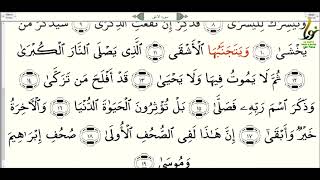 وَنُيَسِّرُكَ لِلْيُسْرَىٰ ٨ فَذَكِّرْ إِن نَّفَعَتِ الذِّكْرَىٰ ٩ سَيَذَّكَّرُ مَن
يَخْشَىٰ ١٠ وَيَتَجَنَّبُهَا الْأَشْقَى ١١ الَّذِي يَصْلَى النَّارَ الْكُبْرَىٰ
١٢ ثُمَّ لَا يَمُوتُ فِيهَا وَلَا يَحْيَىٰ ١٣ قَدْ أَفْلَحَ مَن تَزَكَّىٰ ١٤
وَذَكَرَ اسْمَ رَبِّهِ فَصَلَّىٰ ١٥ بَلْ تُؤْثِرُونَ الْحَيَوٰةَ الدُّنْيَا ١٦ وَالْآخِرَةُ
خَيْرٌ وَأَبْقَىٰ ١٧ إِنَّ هَـٰذَا لَفِي الصُّحُفِ الْأُولَىٰ ١٨ صُحُفِ إِبْرَاهِيمَ
وَمُوسَىٰ ١٩